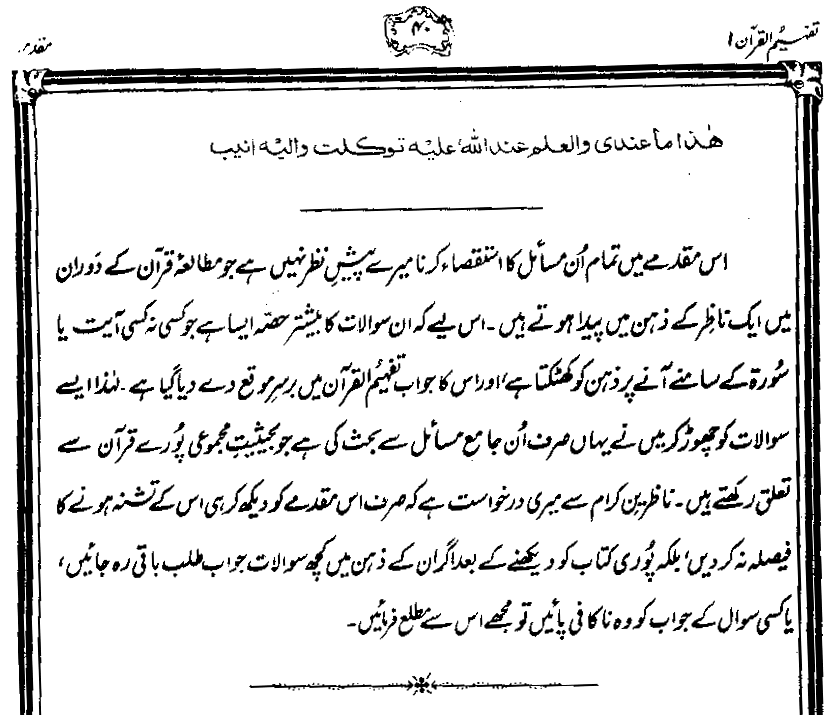 تفہیم القرآن ۱
۴۰
مقدمہ
ھٰذا ما عندی والعلم عند اللہ علیہ توکلت والیہ انیب
اس مقدمے میں تمام اُن مسائل کا استقصاء کرنا میرے پیشِ نظر نہیں ہے جو مطالعۂ قرآن کے دَوران
میں ایک ناظِر کے ذہن میں پیدا ہوتے ہیں۔ اس لیے کہ ان سوالات کا بیشتر حصّہ ایسا ہے جو کسی نہ کسی آیت یا
سُورۃ کے سامنے آنے پر ذہن کو کھٹکتا ہے، اور اس کا جواب تفہیمُ القرآن میں برسرِ موقع دے دیا گیا ہے۔ لہٰذا ایسے
سوالات کو چھوڑ کر میں نے یہاں صرف اُن جامع مسائل سے بحث کی ہے جو بحیثیتِ مجموعی پُورے قرآن سے
تعلق رکھتے ہیں۔ ناظرینِ کرام سے میری درخواست ہے کہ صرف اس مقدمے کو دیکھ کر ہی اس کے تشنہ ہونے کا
فیصلہ نہ کر دیں، بلکہ پُوری کتاب کو دیکھنے کے بعد اگر ان کے ذہن میں کچھ سوالات جواب طلب باقی رہ جائیں،
یا کسی سوال کے جواب کو وہ ناکافی پائیں تو مجھے اس سے مطلع فرمائیں۔